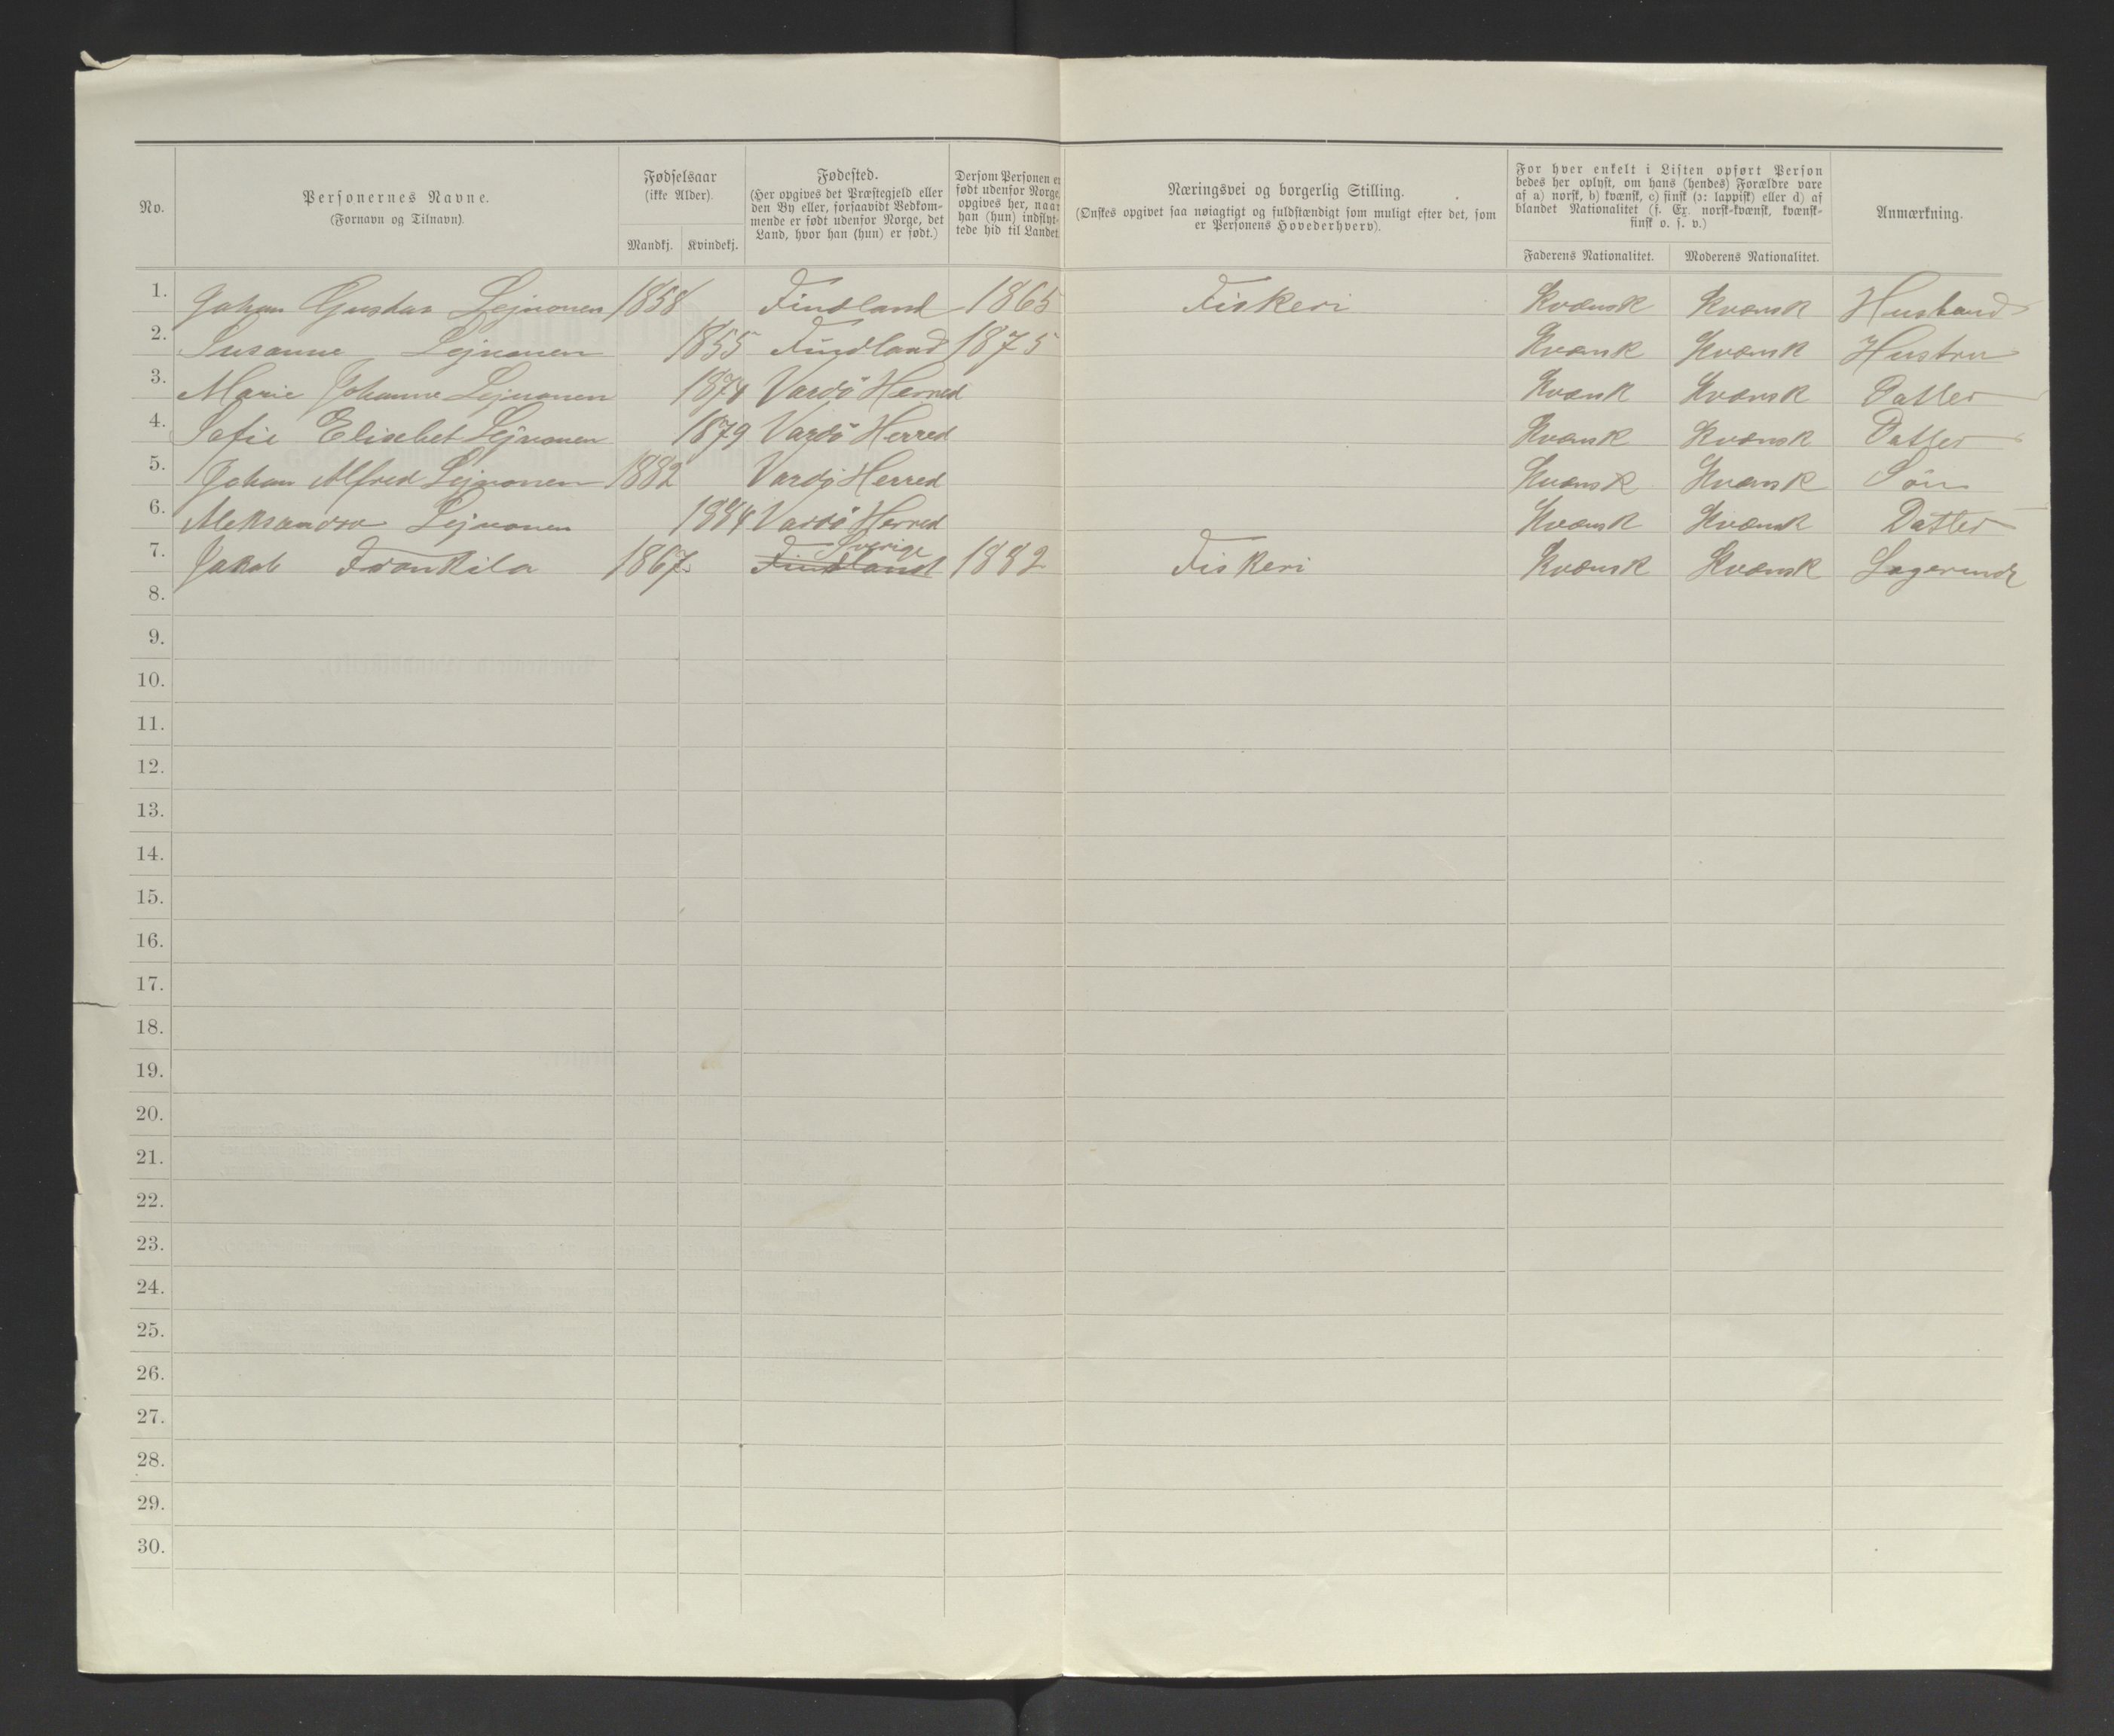 No.
Personernes Navne.
(Fornavn og Tilnavn).
Fødselsaar
(ikke Alder).
Mandkj.
Kvindekj.
Fødested.
(Her opgives det Præstegjeld eller
den By eller, forsaavidt Vedkom-
mende er født udenfor Norge, det
Land, hvor han (hun) er født.)
Dersom Personen er
født udenfor Norge,
opgives her, naar
han (hun) indflyt-
tede hid til Landet.
Næringsvei og borgerlig Stilling.
(Ønskes opgivet saa nøiagtigt og fuldstændigt som muligt efter det, som
er Personens Hovederhverv).
For hver enkelt i Listen opført Person
bedes her oplyst, om hans (hendes) Forældre vare
af a) norsk, b) kvænsk, c) finsk (ɔ: lappisk) eller d) af
blandet Nationalitet (f. Ex. norsk-kvænsk, kvænsk-
finsk o. s. v.)
Faderens Nationalitet.
Moderens Nationalitet.
Anmærkning.
1. Johan Gustav Lejnonen 1858 Findland 1865 Fiskeri Kvænsk Kvænsk Husband
2. Susanne Lejnonen 1855 Findland 1875 Kvænk Kvænsk Hustru
3. Marie Johanne Lejnonen 1874 Vardö Herred Kvænk Kvænsk Datter
4. Sofie Elisebet Lejnonen 1879 Vardö Herred Kvænk Kvænsk Datter
5. Johan Alfred Lejnonen 1882 Vardö Herred Kvænsk Kvænsk Sön
6. Aleksandra Lejnonen 1884 Vardö Herred Kvænsk Kvænsk Datter
7. Jakob Frankila 1867 Findland Sverige 1882 Fiskeri Kvænsk Kvænsk Logerende
8.
9.
10.
11.
12.
13.
14.
15.
16.
17.
18.
19.
20.
21.
22.
23.
24.
25.
26.
27.
28.
29.
30.